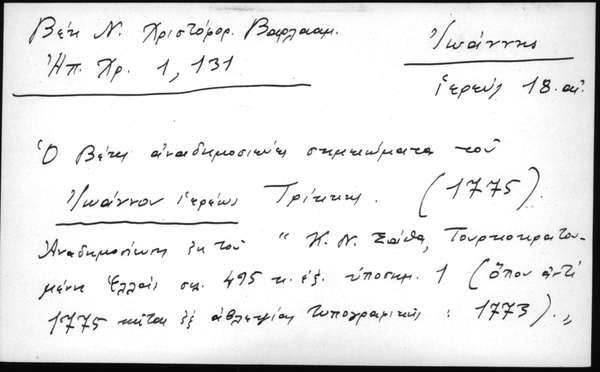 Βέης Ν. Χριστόφορ. Βαρλααμ.
Ἠπ. Χρ. 1, 131
Ἰωάννης
ἱερεύς 18. αἰ.
Ὁ Βέης ἀναδημοσιεύει σημειώματα τοῦ
Ἰωάννου ἱερέως Τρίκκης. (1775)
Ἀναδημοσίευση ἐκ τοῦ " Κ. Ν. Σάθα, Τουρκοκρατου-
μένη Ἑλλάς σελ. 495 κ. ἑξ. ὑποσημ. 1 (ὅπου ἀντί
1775 κεῖται ἐξ ἀβλεψίας τυπογραφικῆς : 1773).„